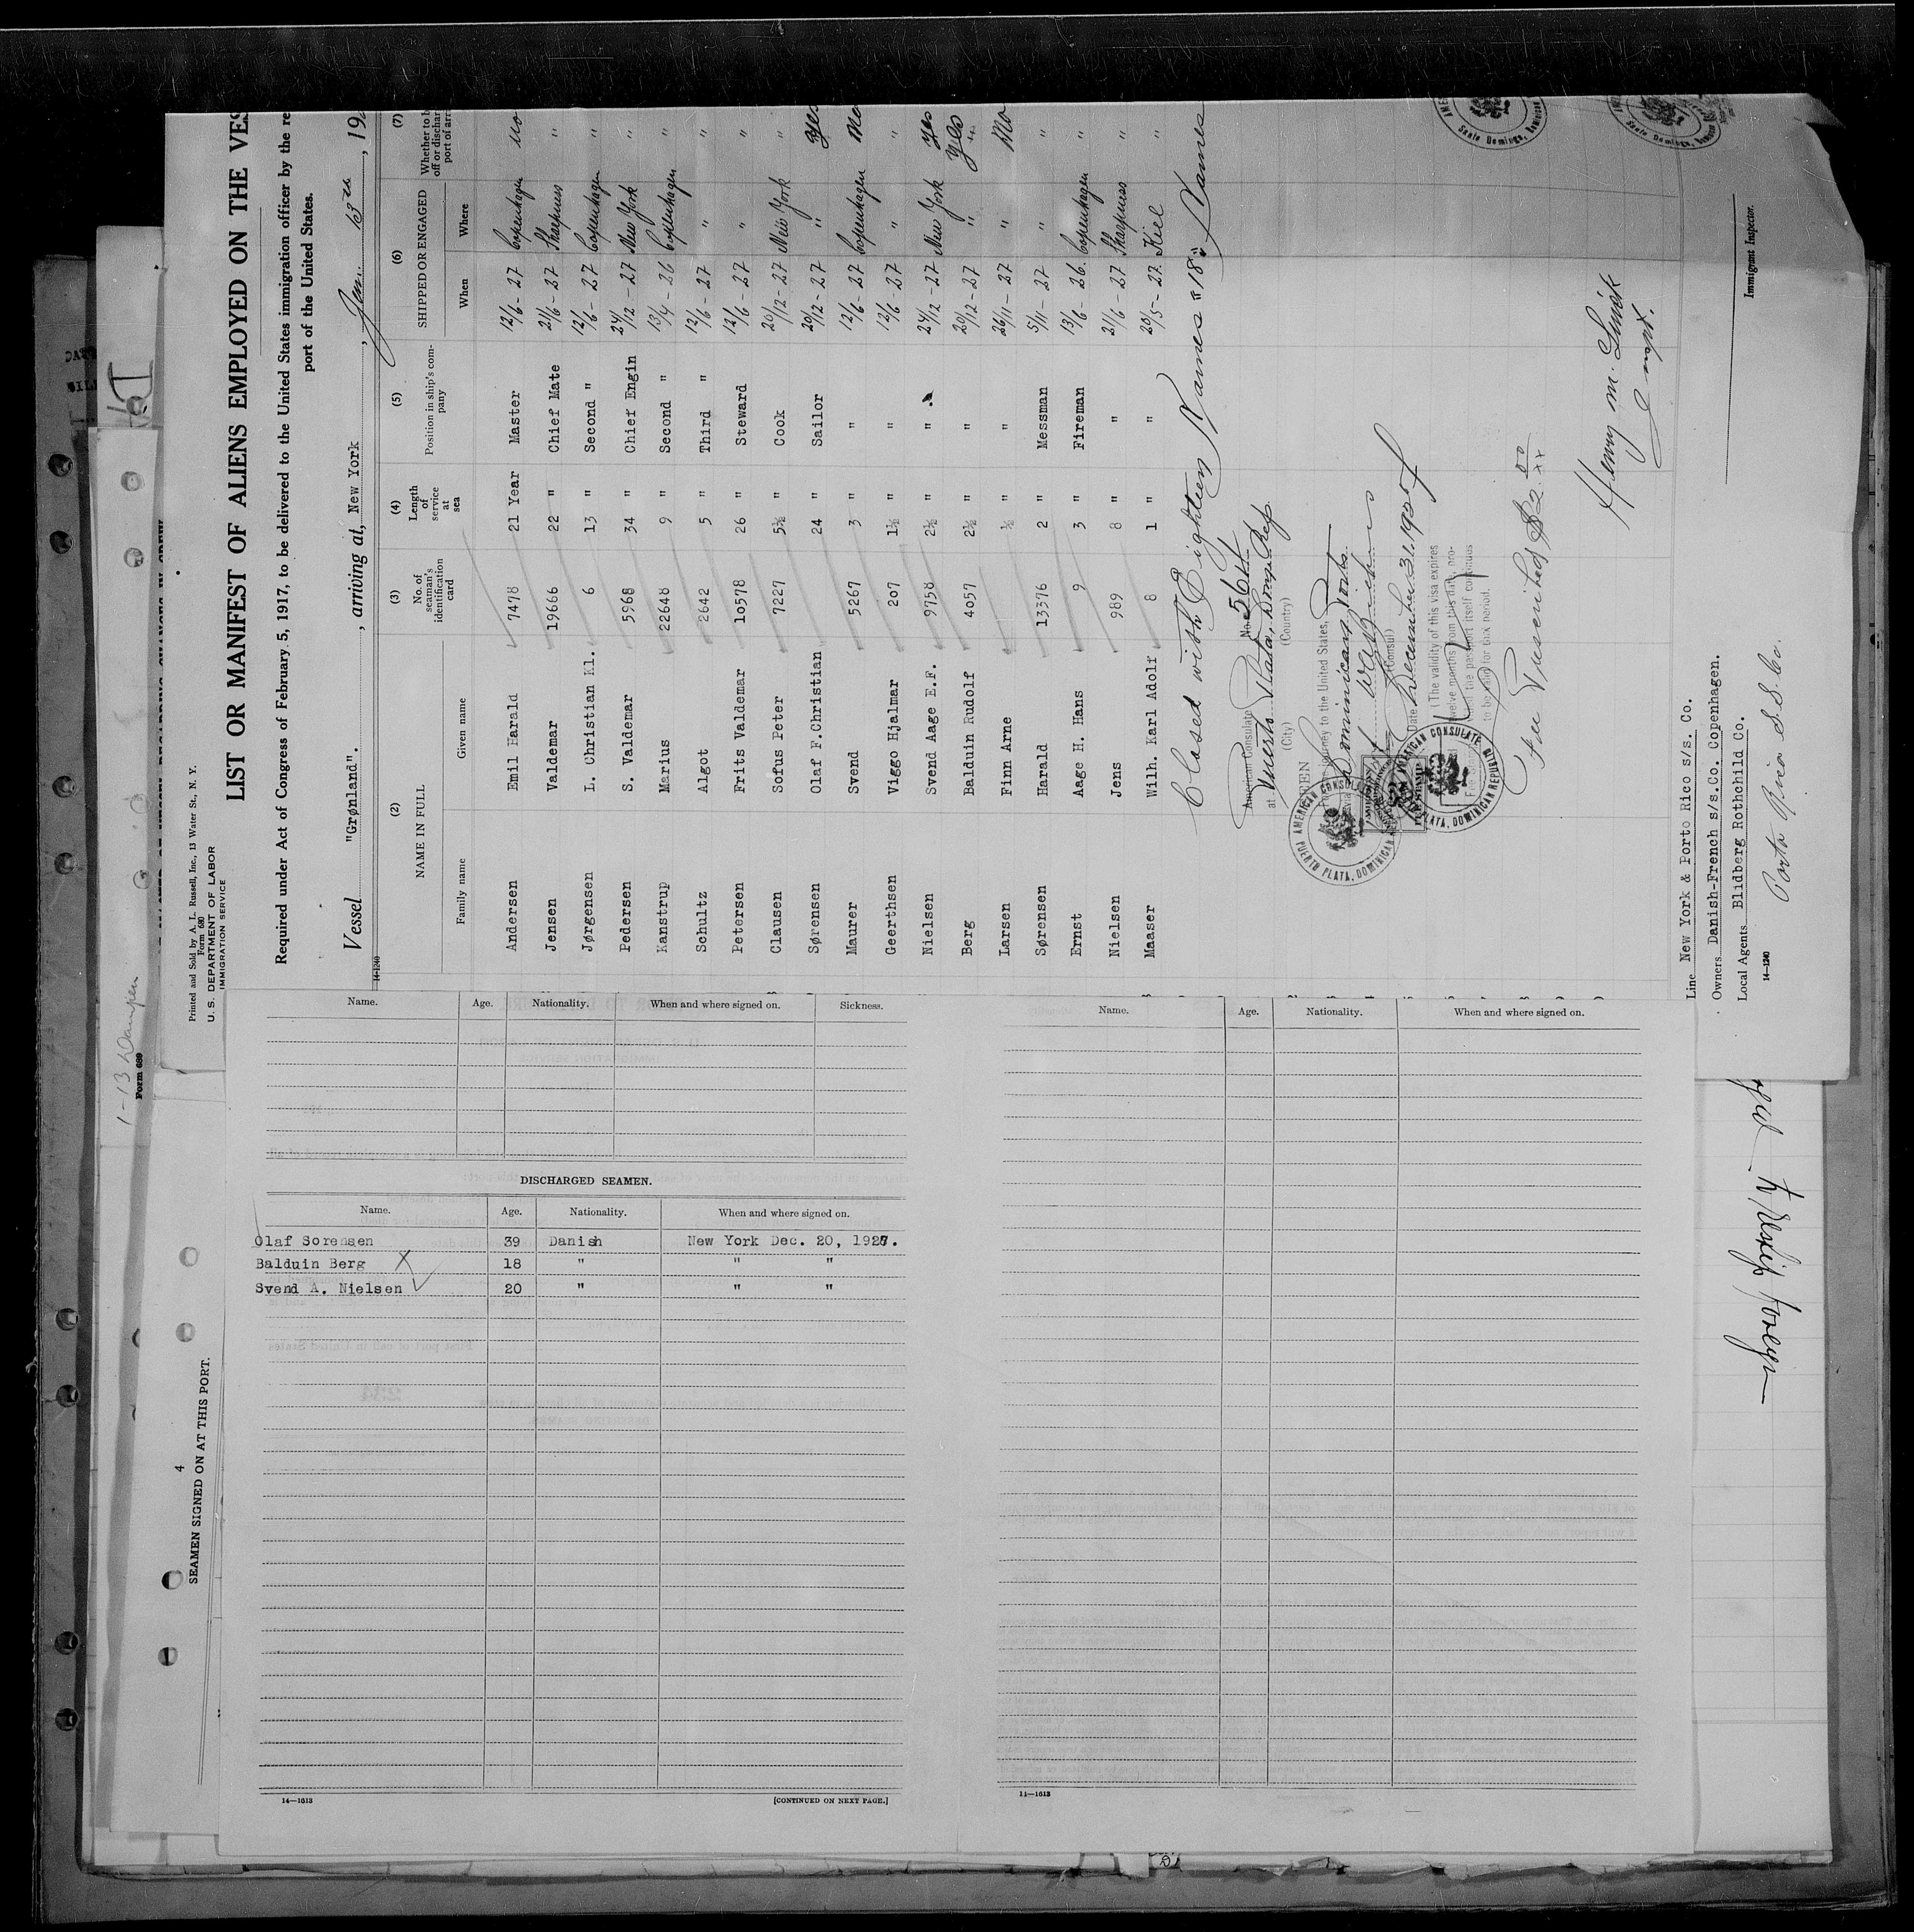 Printed and Sold by A. L. Russell, Inc., 13 Water St., N. Y.
Form 680
U. S. DEPARTMENT OF LABOR
IMMIGRATION SERVICE
LIST OR MANIFEST OF ALIENS EMPLOYED ON THE VES
Required under Act of Congress of February 5, 1917, to be delivered to the United States immigration officer by the re
port of the United States.
Vessel "Grønland". , arriving at, New York , Jan. 13th , 192
14-1240
(2) (3) (4) (5) (6) (7)
NAME IN FULL No. of seaman's identification card Length of service at sea Position in ship's company SHIPPED OR ENGAGED Whether to b off or dischar port of arr
Family name Given name When Where
Andersen Emil Harald 7478 21 Year Master 12/6 - 27 Copenhagen no
Jensen Valdemar 19666 22 " Chief Mate 21/6 - 27 Sharpness "
Jørgensen L. Christian Kl. 6 13 " Second " 12/6 - 27 Copenhagen "
Pedersen S. Valdemar 5968 34 " Chief Engin 24/12 - 27 New York "
Kanstrup Marius 22648 9 " Second " 13/4 - 26 Copenhagen "
Schultz Algot 2642 5 " Third " 12/6 - 27 " "
Petersen Frits Valdemar 10578 26 " Steward 12/6 - 27 " "
Clausen Sofus Peter 7227 5½ " Cook 20/12 - 27 New York "
Sørensen Olaf F.Christian 24 " Sailor 20/12 - 27 " Yes
Maurer Svend 5267 3 " " 12/6 - 27 Copenhagen No
Geerthsen Viggo Hjalmar 207 1½ " " 12/6 - 27 " "
Nielsen Svend Aage E.F. 9758 2½ " " 24/12 - 27 New York Yes
Berg Balduin Rudolf 4057 2½ " " 20/12 - 27 " Yes
Larsen Finn Arne ½ " " 26/11 - 27 " No
Sørensen Harald 13376 2 " Messman 5/11 - 27 " "
Ernst Aage H. Hans 9 3 " Fireman 13/6 - 26. Copenhagen "
Nielsen Jens 989 8 " " 21/6 - 27 Sharpness "
Maaser Wilh. Karl Adolf 8 1 " " 20/5 - 27. Kiel "
Closed with Eighteen Names "18" Names
American Consulate No. 564
at Puerto Plata, Dom. Rep.
(City) (Country)
SEEN
journey to the United States,
via Dominican Ports
(Consul)
Date December 31, 192
(The validity of this visa expires
twelve months from this date, pro-
vided the passport itself continues
to be valid for this period.
Fee Stamp
AMERICAN CONSULATE
PUERTO PLATA, DOMINICAN REPUBLIC
AMERICAN CONSULATE
PLATA, DOMINICAN REPUBLIC
Santo Domingo, Dominican
Santo Domingo,
Henry M.
Immigrant Inspector.
Line New York & Porto Rico s/s. Co.
Owners Danish-French s/s.Co. Copenhagen.
Local Agents Blidberg Rothchild Co.
14-1240
Porto Rico S.S. Co.
Name. Age. Nationality. When and where signed on. Sickness.
DISCHARGED SEAMEN.
Name. Age. Nationality. When and where signed on.
Olaf Sorensen 39 Danish New York Dec. 20, 1927.
Balduin Berg 18 " " "
Svend A. Nielsen 20 " " "
14—1613
[CONTINUED ON NEXT PAGE.]
Name. Age. Nationality. When and where signed on.
14—1613
Form 689
4
SEAMEN SIGNED ON AT THIS PORT.